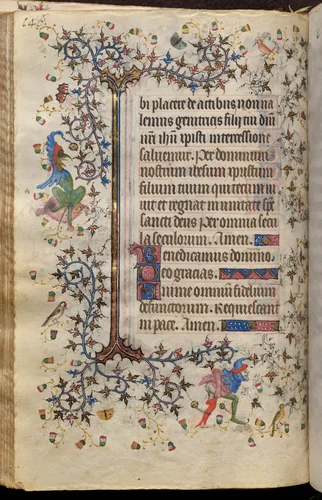 bi placere de actibus non va
lemus genitricis filij tui dñi
nr̃i ihũ xp̃isti intercessione
saluemur. Per dominum
nostrum ihesum xpistum
filium tuum qui tecum ui
uit et regnat in unitate sp̃s
sancti deus per omnia secu
la seculorum. Amen.
Benedicamus domino.
Deo gracias.
Anime omnium fidelium
defunctorum. Requiescant
in pace. Amen.